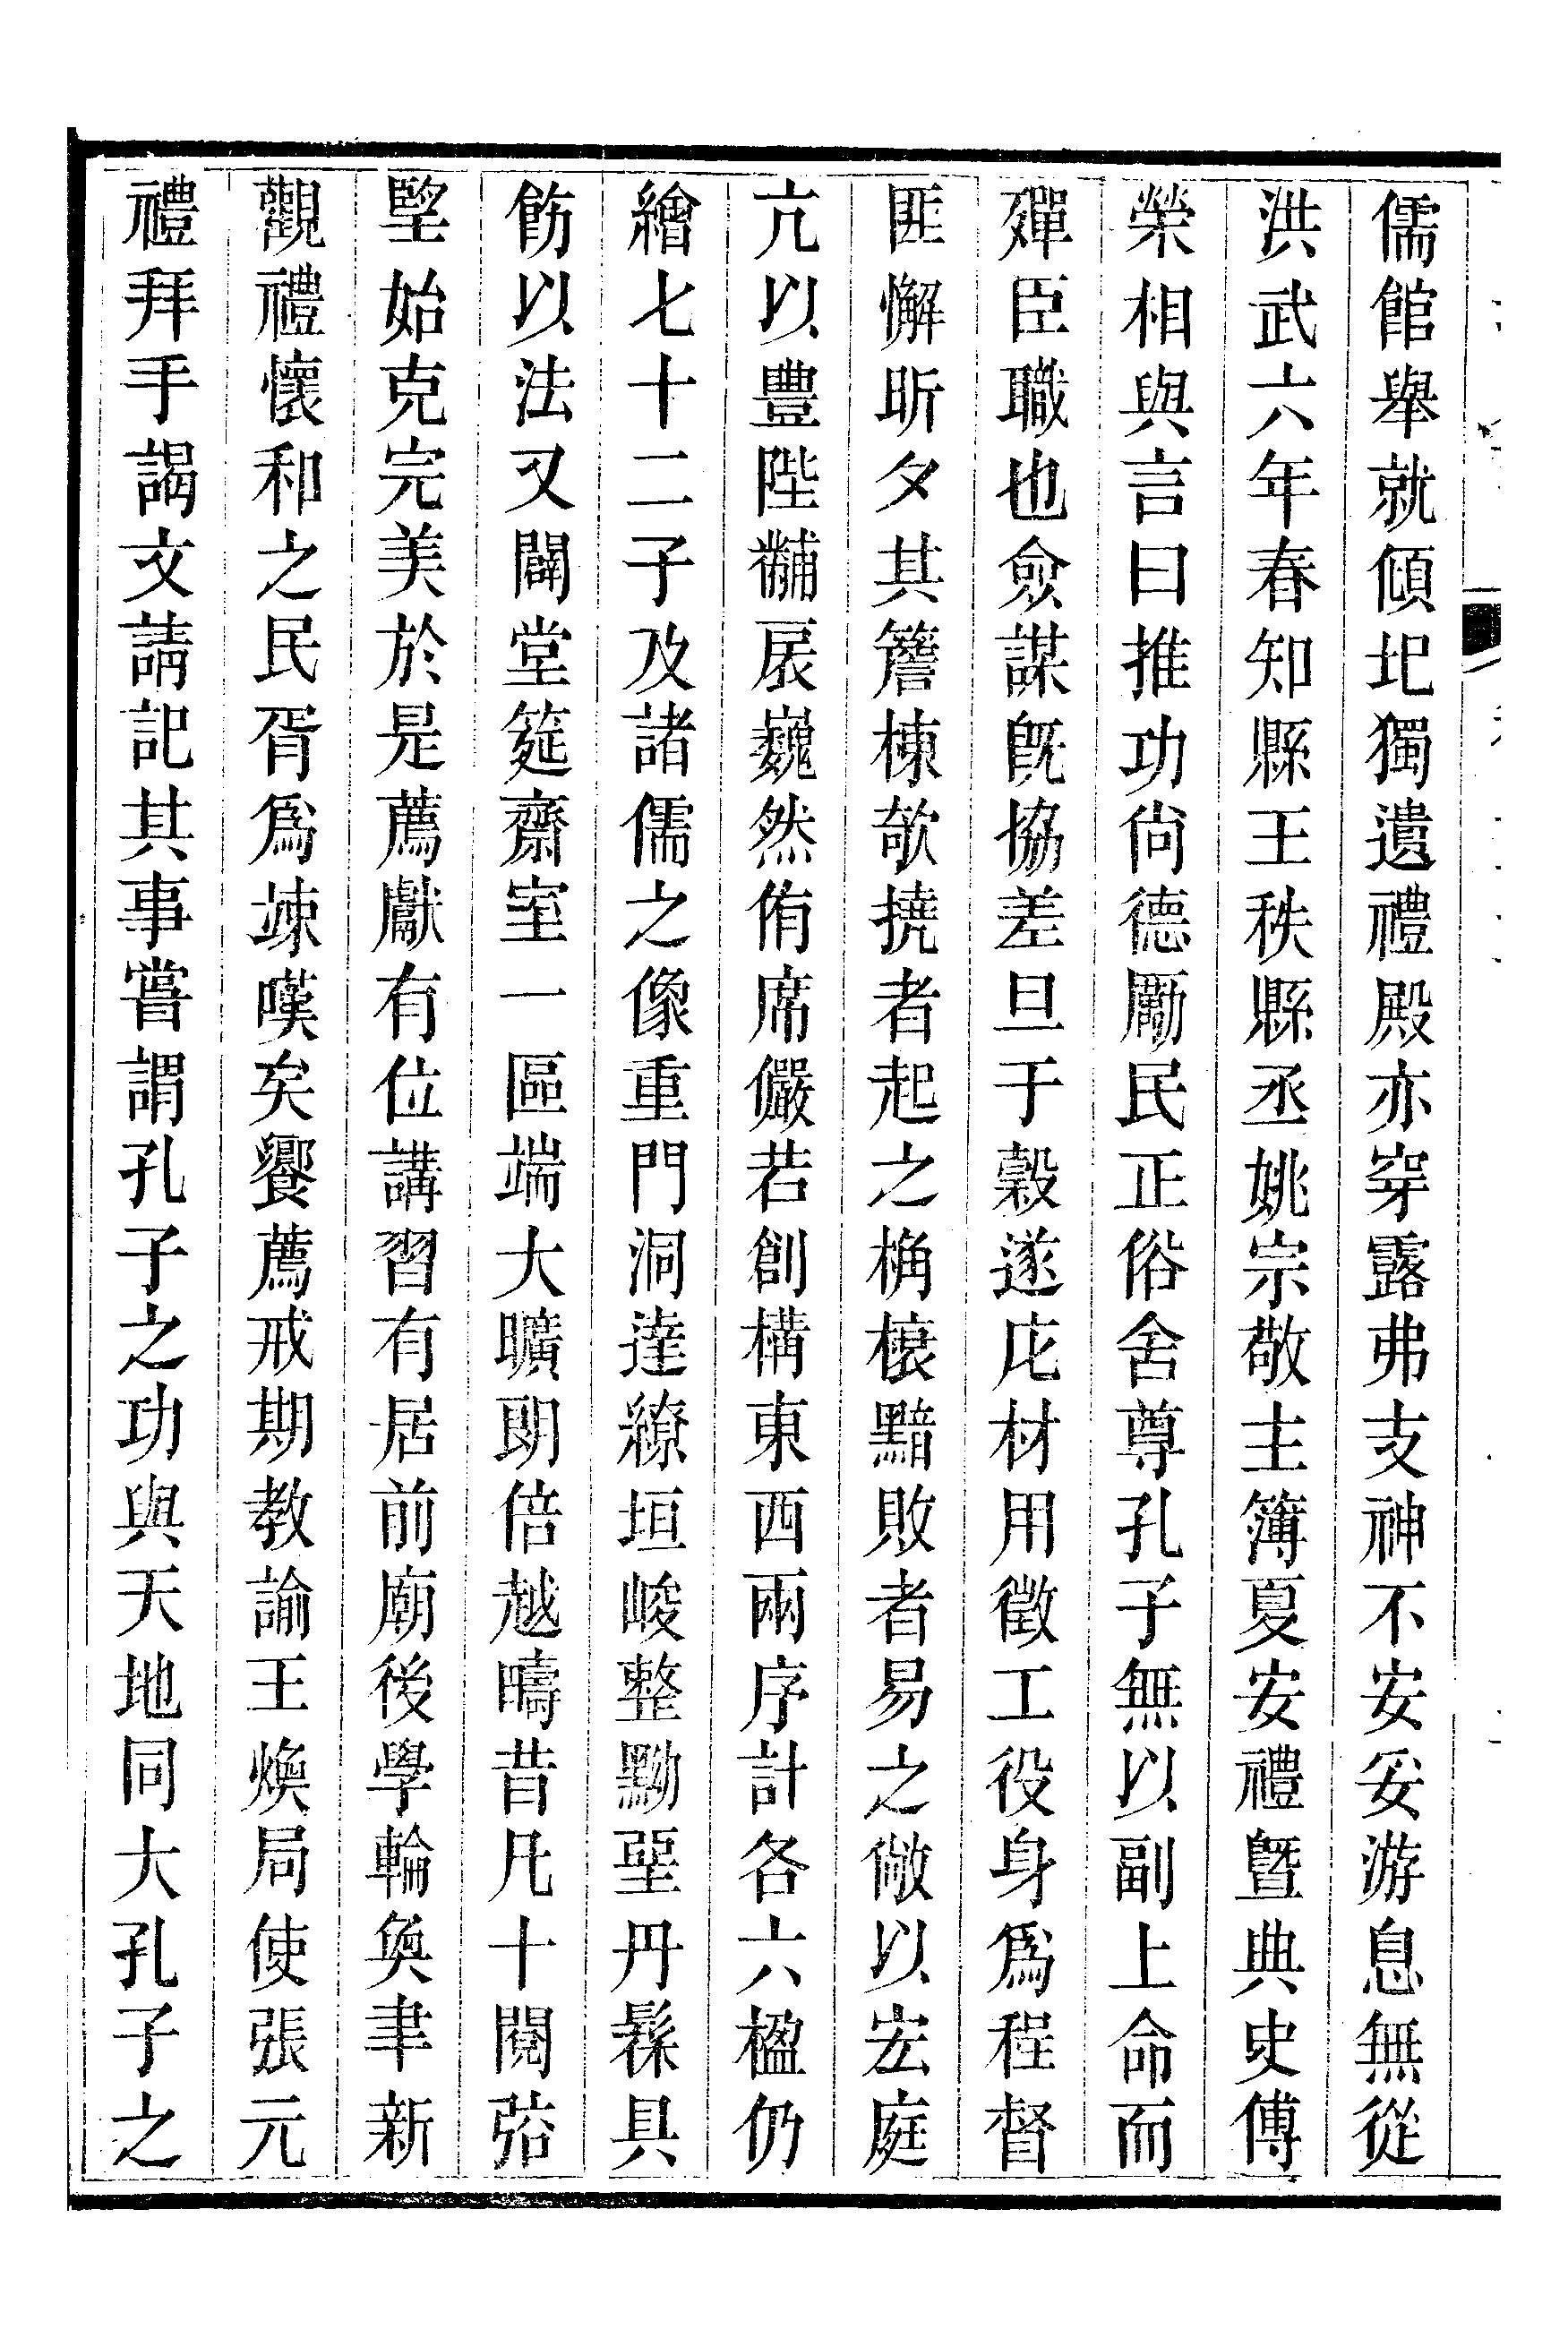 儒館舉就傾圯獨遺禮殿亦穿露弗支神不安妥游息無從
洪武六年春知縣王秩縣丞姚宗敬主簿夏安禮曁典史傅
榮相與言曰推功尙德勵民正俗舍尊孔子無以副上命而
殫臣職也僉謀旣協差旦于穀遂庀材用徵工役身爲程督
匪懈昕夕其簷棟欹撓者起之桷榱黯敗者易之敞以宏庭
亢以豐陛黼扆巍然侑席儼若創構東西兩序計各六楹仍
繪七十二子及諸儒之像重門洞達繚垣峻整黝堊丹髹具
飭以法又闢堂筵齋室一區端大曠朗倍越疇昔凡十閱弦
朢始克完美於是薦獻有位講習有居前廟後學輪奐聿新
觀禮懷和之民胥爲竦嘆矣饗薦戒期教諭王煥局使張元
禮拜手謁文請記其事嘗謂孔子之功與天地同大孔子之